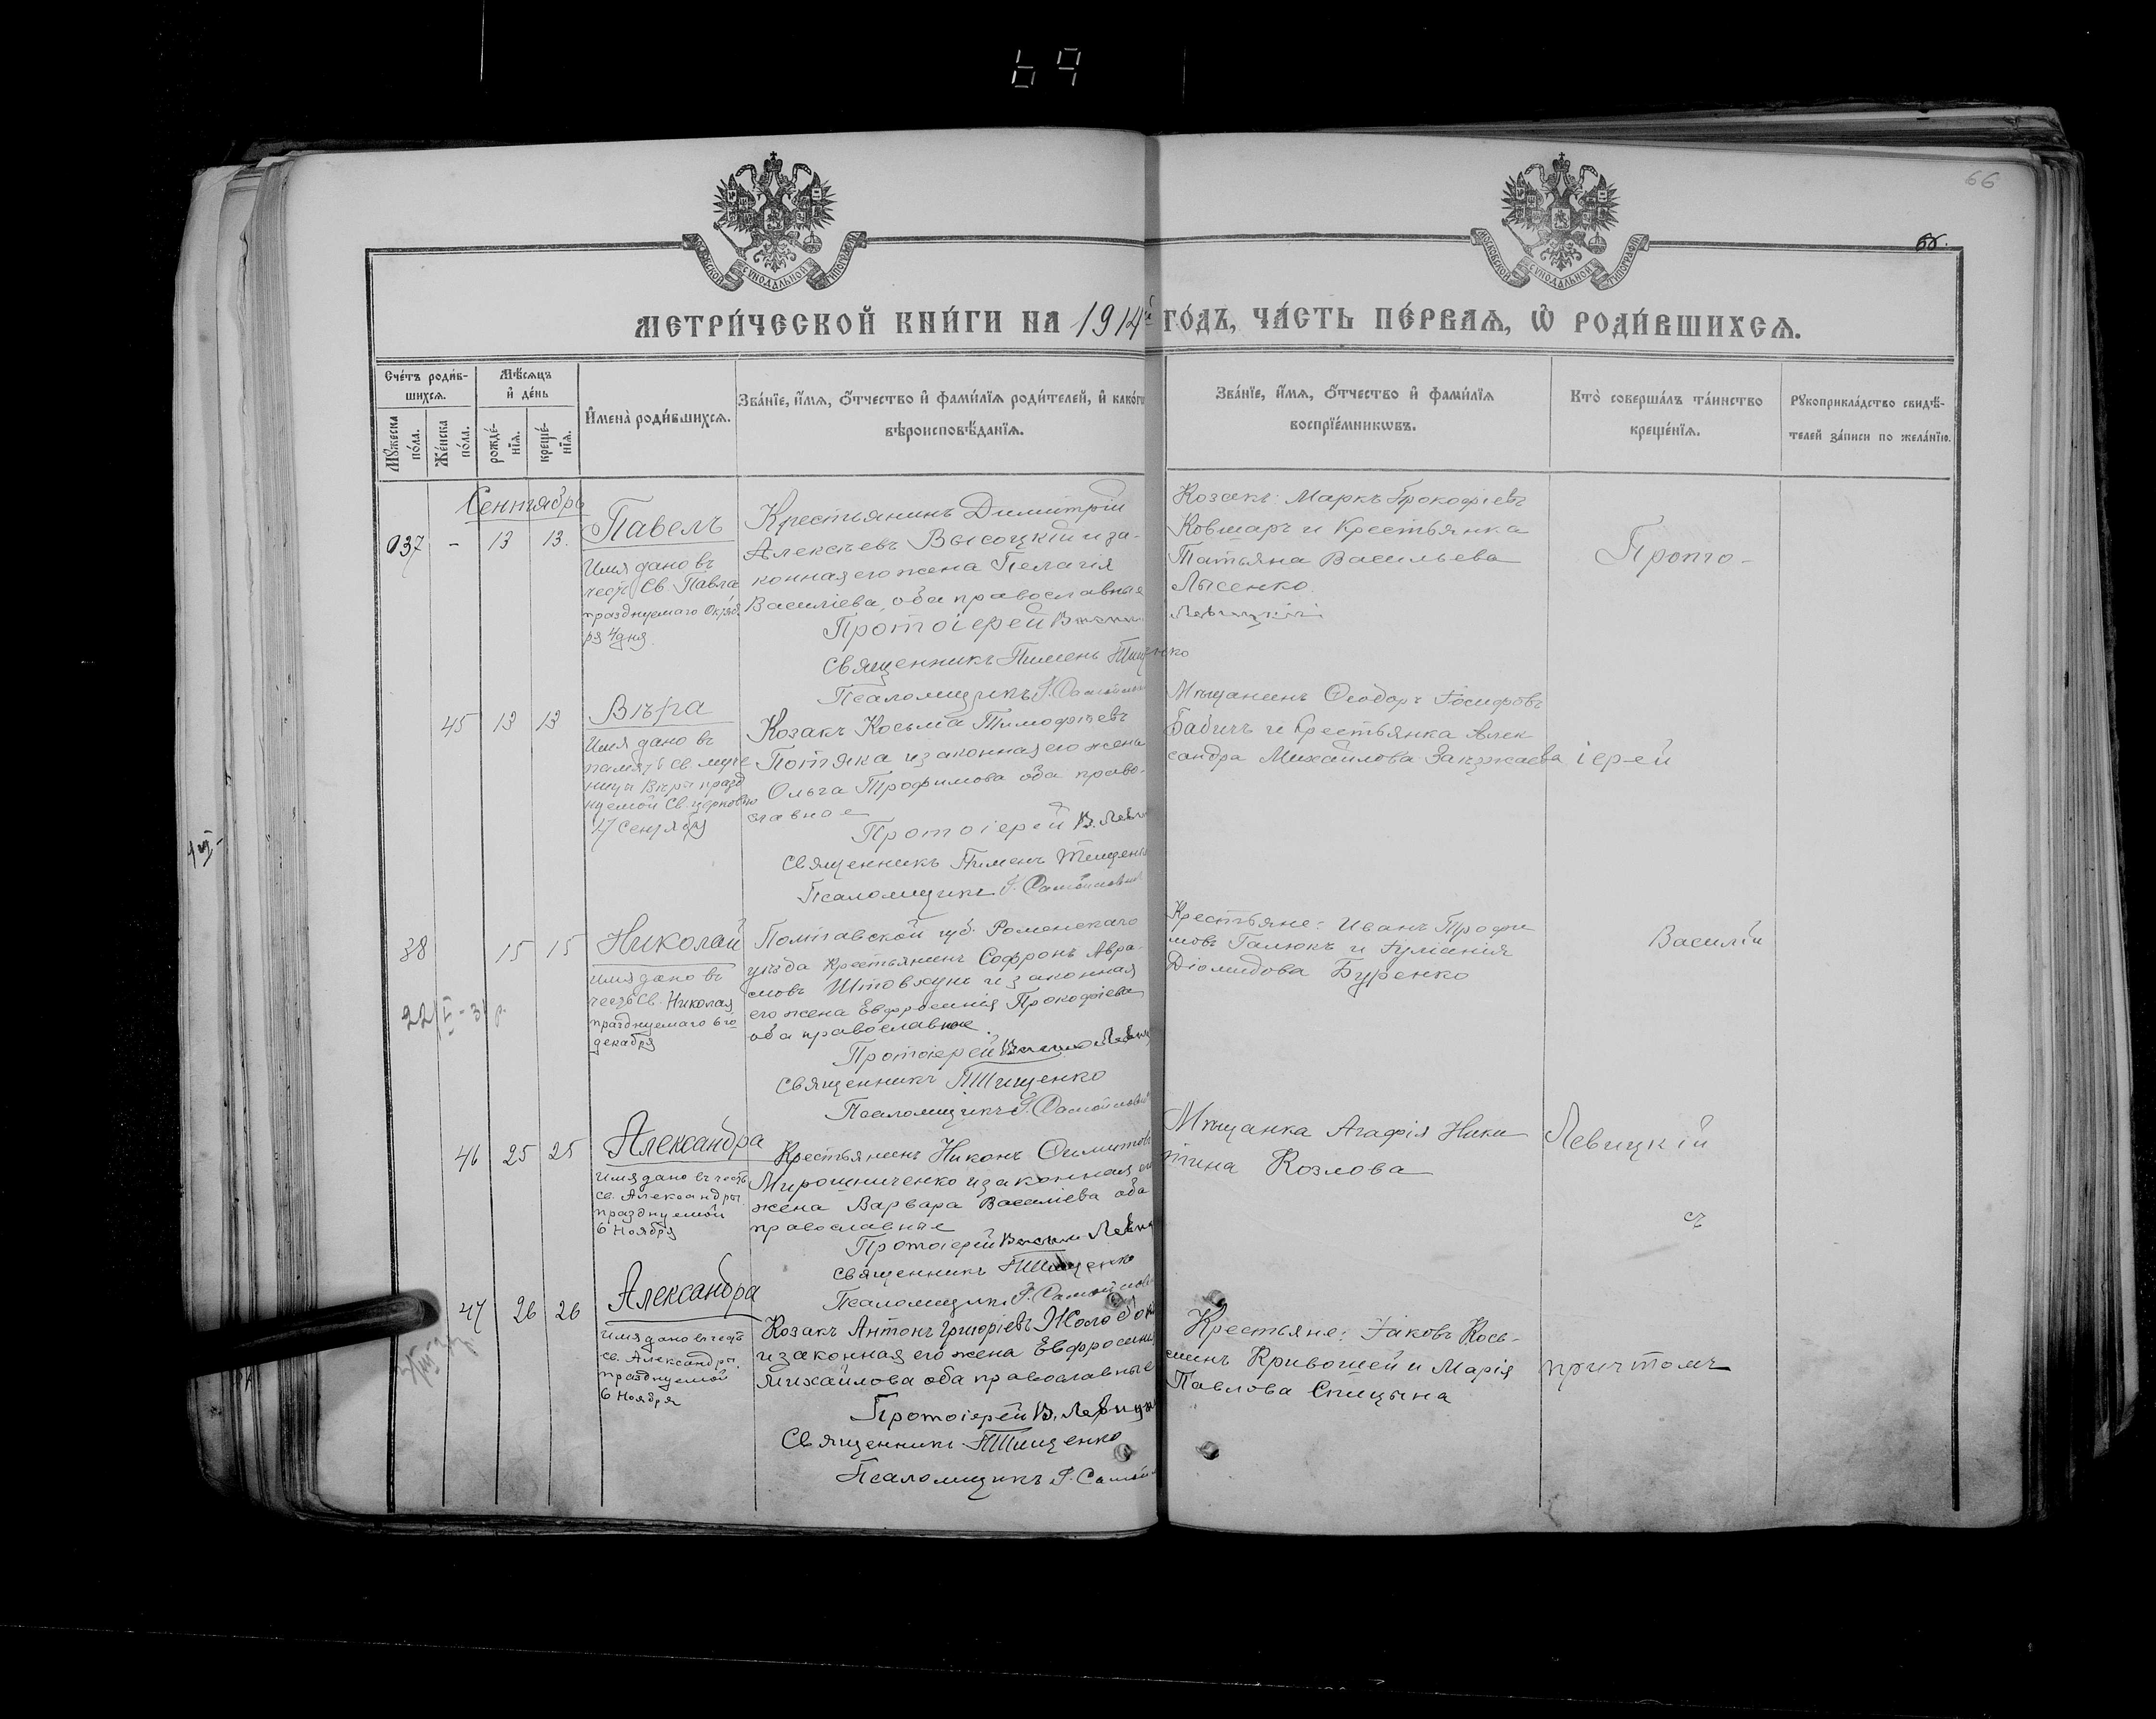 69
66
66.
МОСКОВСКОЙ СѴНОДАЛЬНОЙ ТИПОГРАФІИ
МОСКОВСКОЙ СѴНОДАЛЬНОЙ ТИПОГРАФІИ
МЕТРИ́ЧЕСКОЙ КНИ́ГИ НА 1914й ГО́ДЪ, ЧА́СТЬ ПЕ́РВАѦ, Ѡ РОДИ́ВШИХСѦ.
Сче́тъ роди́в-
шихсѧ.
Мꙋжеска по́ла.
Же́нска по́ла.
Мѣ́сѧцъ
и҆ де́нь
рожде́-
нїѧ.
креще́-
нїѧ.
И҆мена̀ роди́вшихсѧ.
Зва́нїе, и҆́мѧ, ѻ҆́тчество и҆ фами́лїѧ роди́телей, и҆ како́гѡ
вѣроисповѣ́данїѧ.
Зва́нїе, и҆́мѧ, ѻ҆́тчество и҆ фами́лїѧ
воспрїе́мникѡвъ.
Кто̀ соверша́лъ та́инство
креще́нїѧ.
Рꙋкоприкла́дство свидѣ́-
телей за́писи по жела́нїю.
Сентябрь
37 - 13 13.
Павелъ
Имя дано въ
честь Св Павла
празднуемаго Октяб
ря 4 дня.
Крестьянинъ Димитрій
Алексѣевъ Высоцкій и за-
конная его жена Пелагія
Василіева, оба православные
Протоіерей
Священникъ Пименъ Тищенко
Псаломщикъ
Козакъ: Маркъ Прокофіевъ
Ковшарь и Крестьянка
Татьяна Васильева
Лысенко.
Левицкій
Прото-
45 13 13
Вѣра
Имя дано въ
память св муче
ницы Вѣры празд
нуемой Св. церковью
17 сентября
Козакъ Косьма Тимофѣевъ
Потяка и законная его жена
Ольга Трофимова оба право-
славное
Протоіерей В. Леви
Священникъ Пименъ Тищенк
Псаломщикъ
Мѣщанинъ Ѳеодоръ Іосифовъ
Бабичъ и Крестьянка Алек
сандра Михайлова
іерей
38 15 15
Николай
Имя дано въ
честь Св. Николая
празднуемаго 6го
декабря
Полтавской губ. Роменскаго
уѣзда Крестьянинъ Софронъ Авра-
мовъ Штовхунъ и законная
его жена Евфросинія Прокофіева
оба православное.
Протоіерей
Священникъ П Тищенко
Псаломщикъ
Крестьяне: Иванъ Трофи
мовъ Галюкъ и Іуліанія
Діомидова Буренко
Василій
46 25 25
Александра
Имя дано въ честь
св. Александры
празднуемой
6 Ноября
Крестьянинъ Никонъ
Мирошниченко и законная его
жена Варвара Василіева оба
православные
Протоіерей
Священникъ П Тищенко
Псаломщикъ
Мѣщанка Агафія Ники
тина Козлова
Левицкій
съ
47 26 26
Александра
Имя дано въ честь
св. Александры,
празднуемой
6 Ноября
Козакъ Антонъ Григоріевъ Жолобок
и законная его жена Евфросинія
Михайлова оба православные
Протоіерей В. Левицк
Священникъ П Тищенко
Псаломщикъ
Крестьяне: Іаковъ Кось-
минъ Кривошей и Марія
Павлова Спицына
причтомъ